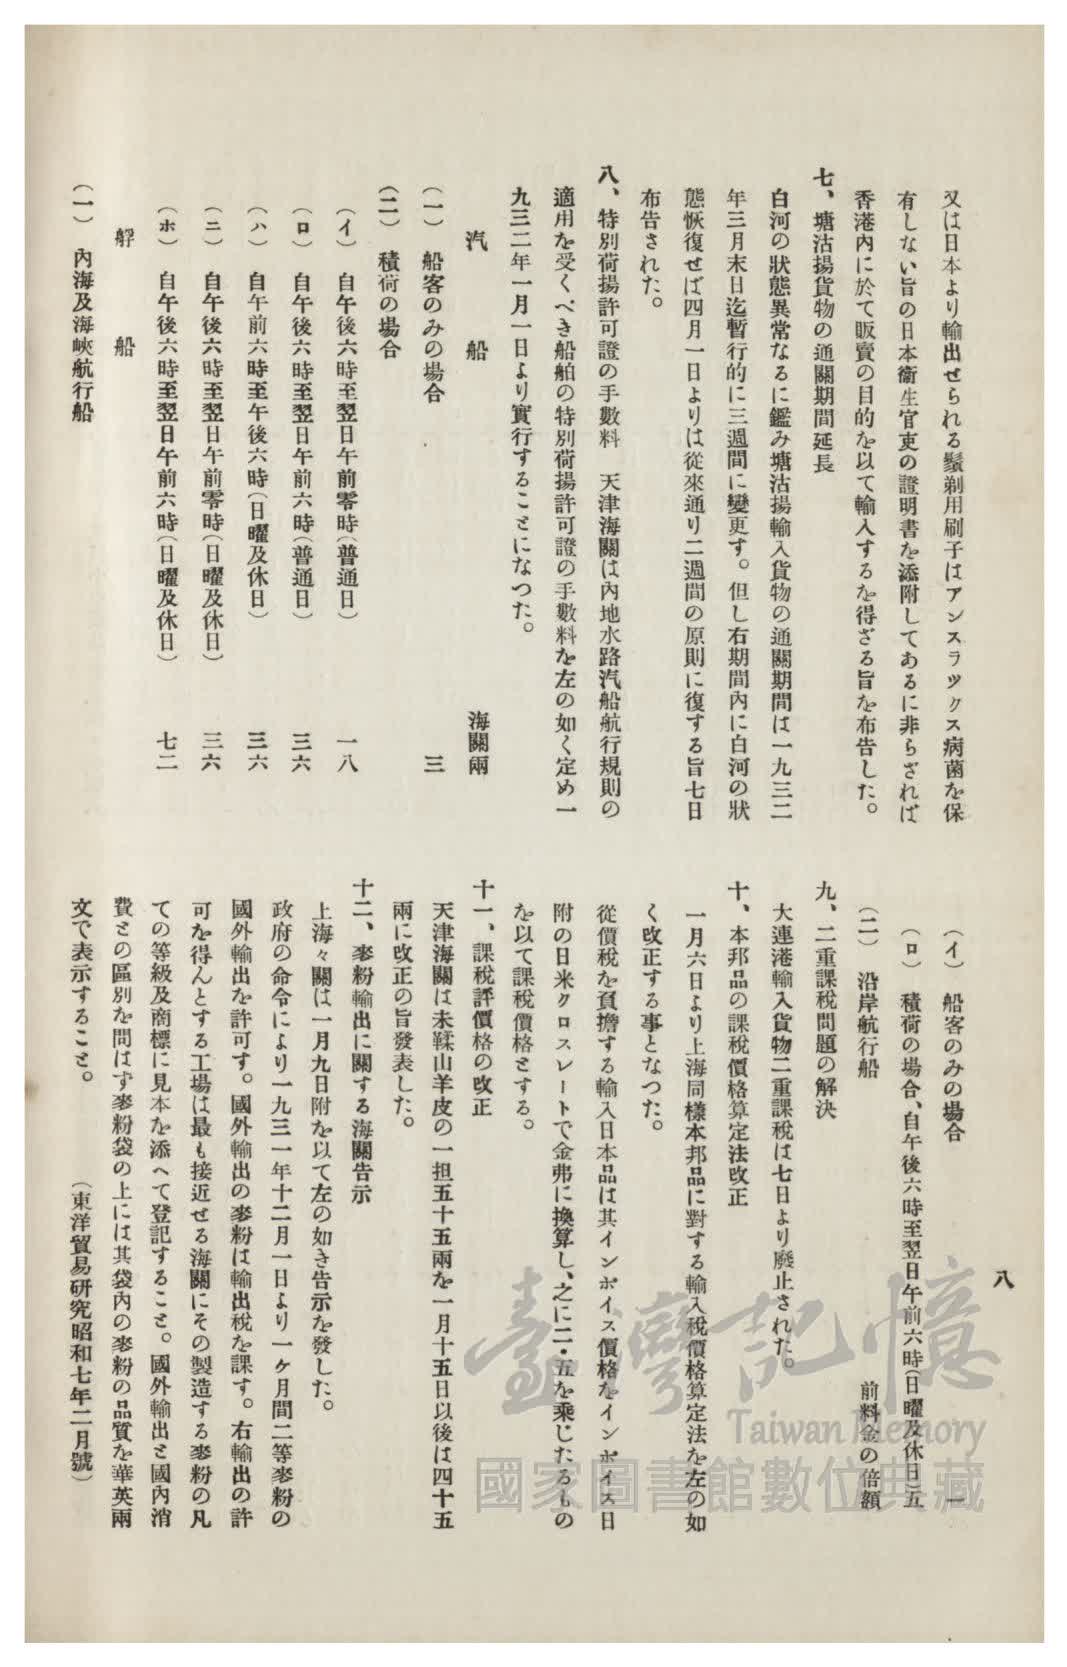 八
又は日本より輸出せられる鬚剃用刷子はアンスラックス病菌を保
有しない旨の日本衞生官吏の證明書を添附してあるに非らざれば
香港內に於て販賣の目的を以て輸入するを得ざる旨を布告した。
七、塘沽揚貨物の通關期間延長
白河の狀態異常なるに鑑み塘沽揚輸入貨物の通關期間は一九三二
年三月末日迄暫行的に三週間に變更す。但し右期間內に白河の狀
態恢復せば四月一日よりは從來通り二週間の原則に復する旨七日
布告された。
八、特別荷揚許可證の手數料　天津海關は內地水路汽船航行規則の
適用を受くべき船舶の特別荷揚許可證の手數料を左の如く定め一
九三二年一月一日より實行することになつた。
汽　船　海關兩
（一）　船客のみの場合　三
（二）　積荷の場合
（イ）　自午後六時至翌日午前零時（普通日）　一八
（ロ）　自午後六時至翌日午前六時（普通日）　三六
（ハ）　自午前六時至午後六時（日曜及休日）　三六
（ニ）　自午後六時至翌日午前零時（日曜及休日）　三六
（ホ）　自午後六時至翌日午前六時（日曜及休日）　七二
艀　船
（一）　內海及海峽航行船
（イ）　船客のみの場合　一
（ロ）　積荷の場合、自午後六時至翌日午前六時（日曜及休日）五
（二）　沿岸航行船　前料金の倍額
九、二重課稅問題の解決
大連港輸入貨物二重課稅は七日より廢止された。
十、本邦品の課稅價格算定法改正
一月六日より上海同樣本邦品に對する輸入稅價格算定法を左の如
く改正する事となつた。
從價稅を負擔する輸入日本品は其インボイス價格をインボイス日
附の日米クロスレートで金弗に換算し、之に二・五を乘じたるもの
を以て課稅價格とする。
十一、課稅評價格の改正
天津海關は未鞣山羊皮の一担五十五兩を一月十五日以後は四十五
兩に改正の旨發表した。
十二、麥粉輸出に關する海關告示
上海々關は一月九日附を以て左の如き告示を發した。
政府の命令により一九三一年十二月一日より一ケ月間二等麥粉の
國外輸出を許可す。國外輸出の麥粉は輸出稅を課す。右輸出の許
可を得んとする工場は最も接近せる海關にその製造する麥粉の凡
ての等級及商標に見本を添へて登記すること。國外輸出と國內消
費との區別を問はず麥粉袋の上には其袋內の麥粉の品質を華英兩
文で表示すること。　（東洋貿易硏究昭和七年二月號）
臺灣記憶
Taiwan Memory
國家圖書館數位典藏